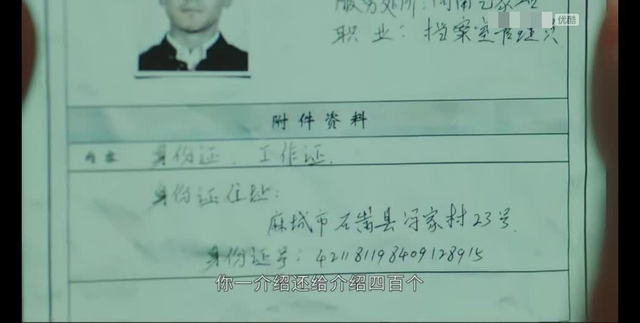 服务处所:河南
优酷
职业:档案室管理员
附件资料
身份证、工作证
身份证住址:
麻城市石嵩县守家村23号
身份证号:421181198409128915
你一介绍还给介绍四百个